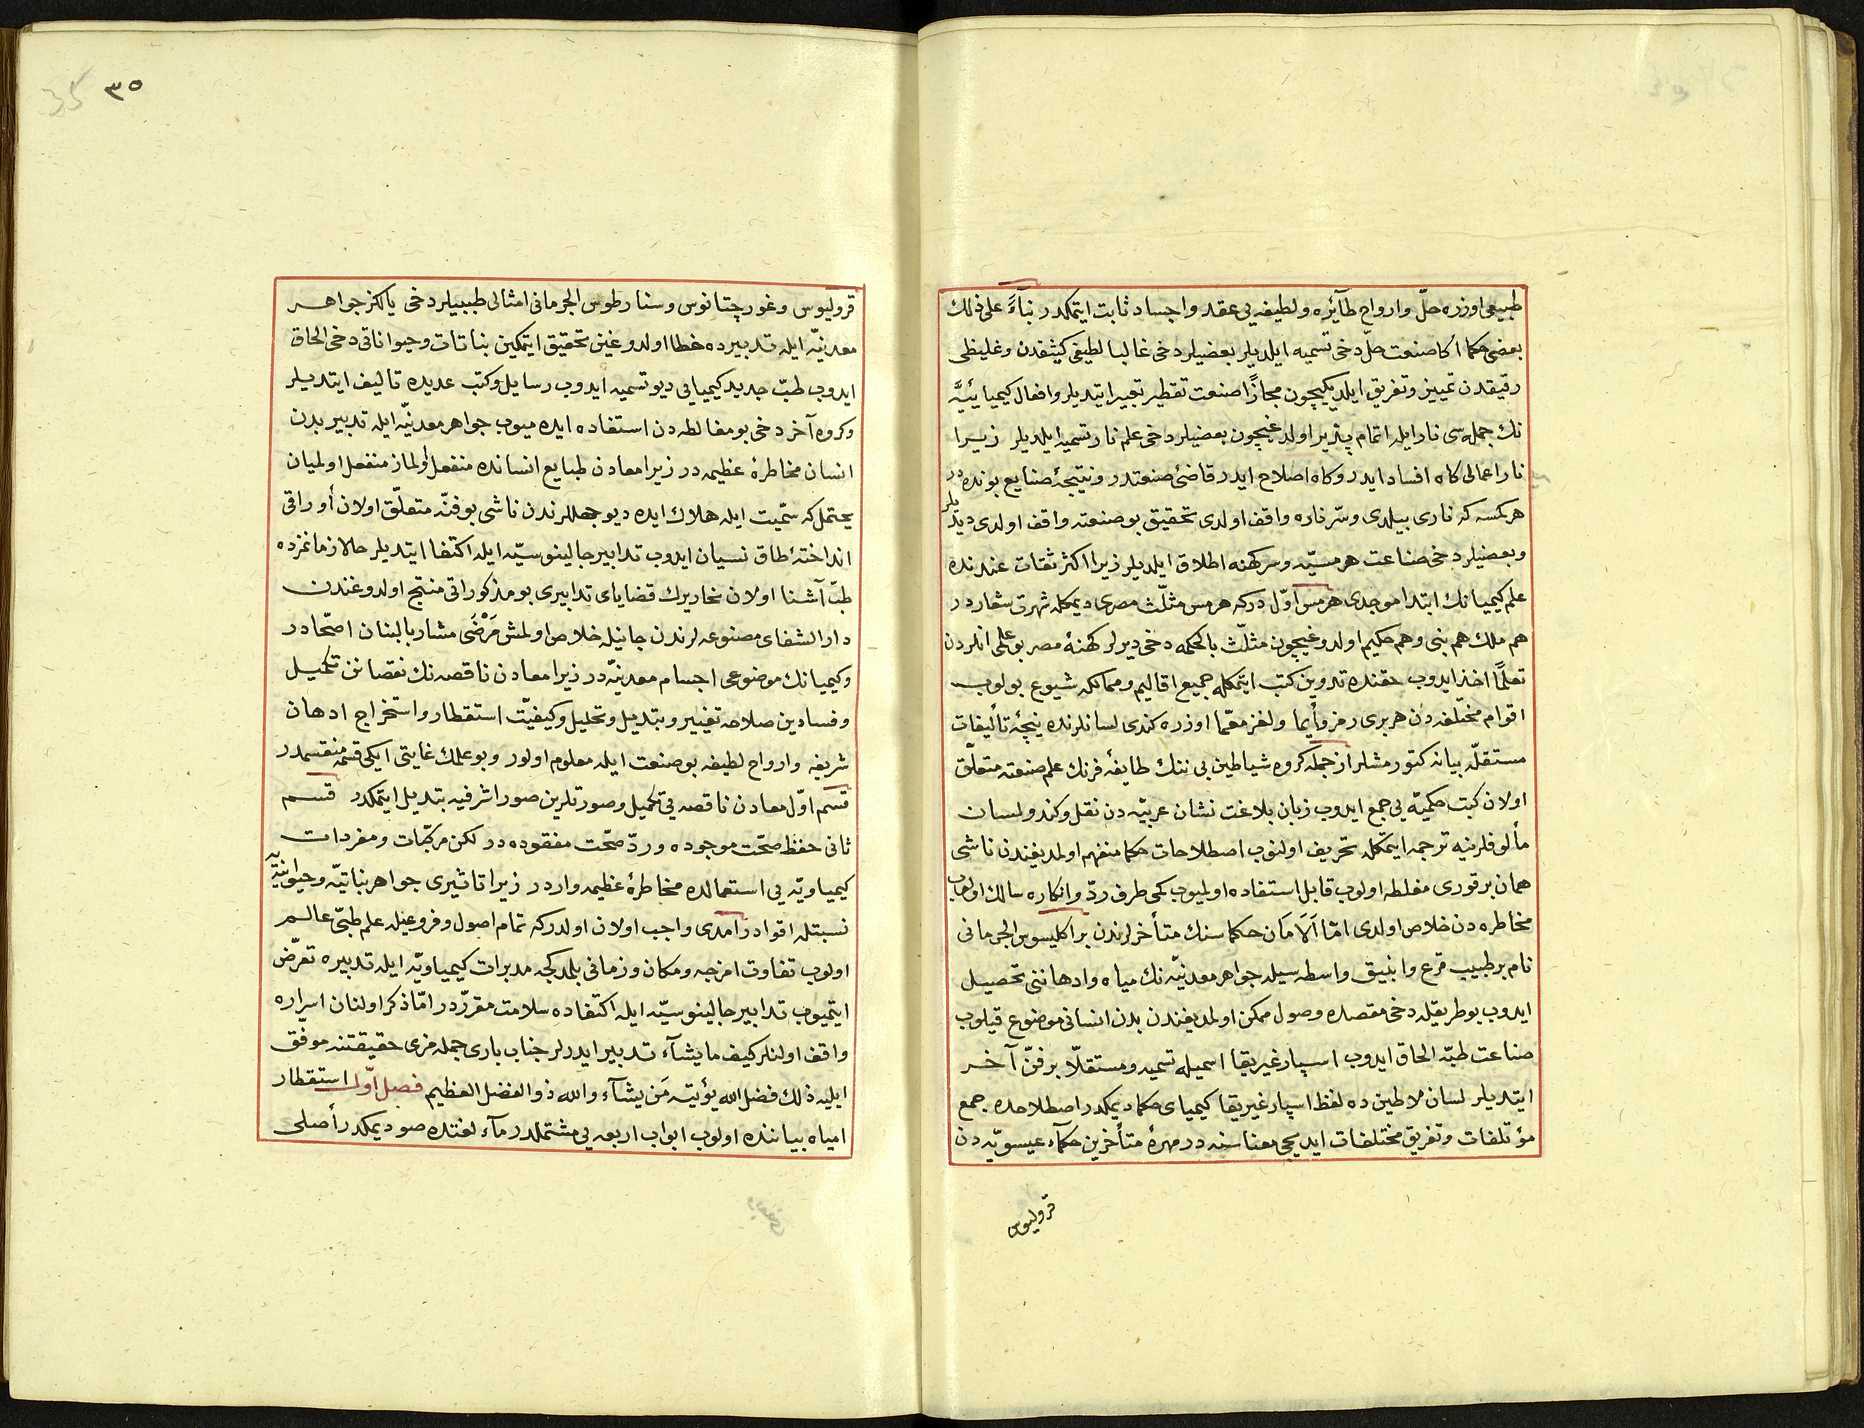 طبیعی اوزره حلّ و ارواح طآئره و لطیفه یی عقد و اجساد ثابت ایتمکدر بنآءً علی ذلك
بعضی حکما اکا صنعت حلّ دخی تسمیه ایلدیلر بعضیلر دخی غالبا لطیفی کثیفدن و غلیظی
رقیقدن تمییز و تفریق ایلدیکیچون مجازًا صنعت تقطیر تعبیر ایتدیلر و افعال کیمیائیّه
نك جمله سی نار ایله اتمام پذیر اولدغیچون بعضیلر دخی علم نار تسمیه ایلدیلر زیرا
نار اعمالی کاه افساد ایدر و کاه اصلاح ایدر قاضیٔ صنعتدر و نتیجهٔ صنایع بونده در
هر کمسه که ناری بیلدی و سرّ ناره واقف اولدی تحقیق بو صنعته واقف اولدی دیدیلر
و بعضیلر دخی صناعت هرمسیّه و سر کهنه اطلاق ایلدیلر زیرا اکثر ثقات عندنده
علم کیمیانك ابتدا موجدی هرمس اوّلدرکه هرمس مثلّث مصری دیمکله شهرت شعاردر
هم ملك هم نبی و هم حکیم اولدوغیچون مثلّث بالحکمه دخی دیرلر کهنهٔ مصر بو علمی انلردن
تعلّمًا اخذ ایدوب حقنده تدوین کتب ایتمکله جمیع اقالیم و ممالکه شیوع بولوب
اقوام مختلفه دن هربری رمز و أیما و لغز معمّا اوزره کندی لسانلرنده نیچه تألیفات
مستقلّه بیانه کتورمشلر از جمله کروه شیاطین بی ننك طایفهٔ فرنك علم صنعته متعلّق
اولان کتب حکمیّه یی جمع ایدوب زبان بلاغت نشان عربیّه دن نقل و کندو لسان
مألوفلرینه ترجمه ایتمکله تحریف اولنوب اصطلاحات حکما منفهم اولمدیغندن ناشی
همان بر قوری مغلطه اولوب قابل استفاده اولمیوب کمی طرف ردّ و انکاره سالك اولوب
مخاطره دن خلاص اولدی امّا اَلَامَان حکماسنك متأخرلرندن براکلیسوس الجرمانی
نام بر طبیب قرع و انبیق واسطه سیله جواهر معدنیّه نك میاه و ادهاننی تحصیل
ایدوب بو طریقله دخی مقصده وصول ممکن اولمدیغندن بدن انسانی موضوع قیلوب
صناعت طبّه الحاق ایدوب اسپارغیریقا اسمیله تسمیه و مستقلّا بر فنّ آخر
ایتدیلر لسان لاطین ده لفظ اسپارغیریقا کیمیای حکما دیمکدر اصطلاحده جمع
مؤتلفات و تفریق مختلفات ایدیجی معناسنه در مهرهٔ متأخرین حکمآء عیسویّه دن
قرولیوس
٣٥
35
قرولیوس و غورچتانوس و سنارطوس الجرمانی امثالی طبیبیلر دخی یالکز جواهر
معدنیّه ایله تدبیرده خطا اولدوغین تحقیق ایتمکین بناتات و حیواناتی دخی الحاق
ایدوب طبّ جدید کیمیایی دیو تسمیه ایدوب رسایل و کتب عدیده تالیف ایتدیلر
و کروه آخر دخی بو مغالطه دن استفاده ایده میوب جواهر معدنیّه ایله تدبیر بدن
انسان مخاطرهٔ عظیمه در زیرا معادن طبایع انسانده منفعل اولماز منفعل اولمیان
یحتمل که سمّیت ایله هلاك ایده دیو جهللرندن ناشی بو فنّه متعلّق اولان أوراقی
انداختهٔ طاق نسیان ایدوب تدابیر جالینوسیّه ایله اکتفا ایتدیلر حالا زمانمزده
طبّ آشنا اولان نحاریرك قضایای تدابیری بو مذکوراتی منتج اولدوغندن
دار الشفای مصنوعه لرندن جانیله خلاص اولمش مَرْضَی مشار بالبنان اصحّادر
و کیمیانك موضوعی اجسام معدنیّه در زیرا معادن ناقصه نك نقصانن تکمیل
و فسادین صلاحه تغییر و تبدیل و تحلیل و کیفیّت استقطار و استخراج ادهان
شریفه و ارواح لطیفه بو صنعت ایله معلوم اولور و بو علمك غایتی ایکی قسمه منقسمدر
قسم اوّل معادن ناقصه یی تکمیل و صورتلرین صور اشرفیه تبدیل ایتمکدر قسم
ثانی حفظ صحّت موجوده و ردّ صحّت مفقوده در لکن مرکّبات و مفردات
کیمیاویّه یی استعمالده مخاطرهٔ عظیمه واردر زیرا تاثیری جواهر نباتیّه و حیوانیّه یه
نسبتله اقوادر آمدی واجب اولان اولدرکه تمام اصول و فروعیله علم طبّی عالم
اولوب تفاوت امزجه و مکان و زمانی بلمدکجه مدبرات کیمیاویّه ایله تدبیره تعرّض
ایتمیوب تدابیر جالینوسیّه ایله اکتفاده سلامت مقرّردر امّا ذکر اولنان اسراره
واقف اولنلر کیف مایشآء تدبیر ایدرلر جناب باری جمله مزی حقیقتنه موفق
ایلیه ذلك فضل الله یؤتیه مَن یشآء والله ذو الفضل العظیم فصل اوّل استقطار
امیاه بیاننده اولوب ابواب اربعه یی مشتملدر مآء لغتده صو دیمکدر أصلی